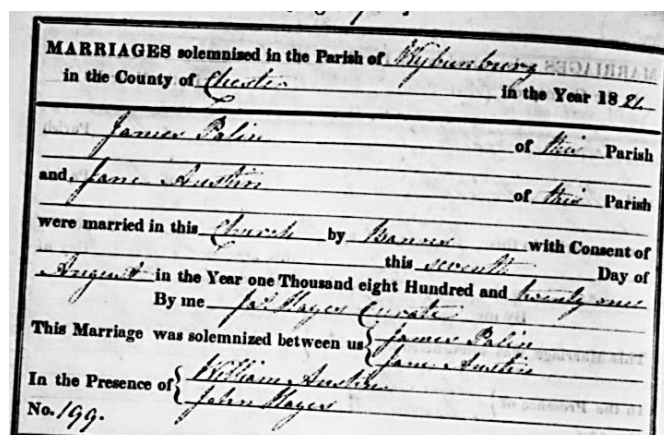 MARRIAGES solemnized in the Parish of Wybunbury
in the County of Chester in the Year 1821
James Palin of this Parish
and Jane Austin of this Parish
were married in this Church by Banns with Consent of
this seventh Day of
August in the Year one Thousand eight Hundred and twenty one
By me Jas Mayer Curate
This Marriage was solemnized between us { James Palin
Jane Austin
In the Presence of { William Austin
John Mayer
No. 199.